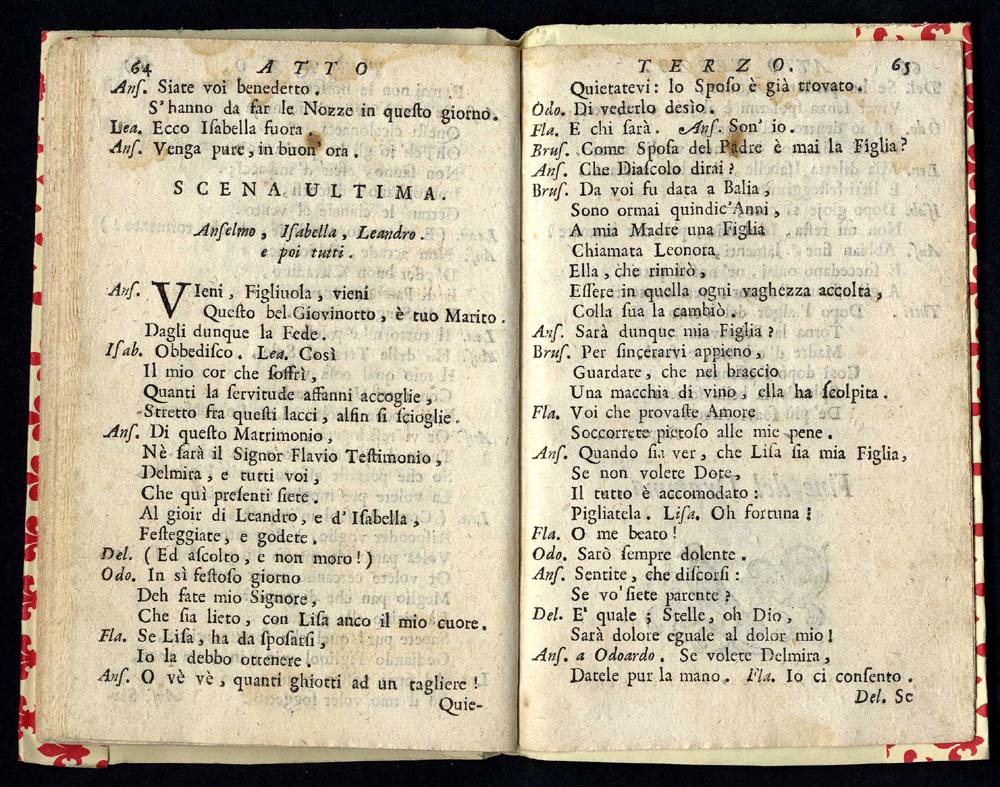 64 ATTO
Anſ. Siate voi benedetto.
S'hanno da far le Nozze in queſto giorno.
Lea. Ecco Iſabella fuora.
Anſ. Venga pure, in buon' ora.
SCENA ULTIMA.
Anſelmo, Iſabella, Leandro.
e poi tutti.
Anſ. VIeni, Figliuola, vieni
Queſto bel Giovinotto, è tuo Marito.
Dagli dunque la Fede.
Iſab. Obbediſco. Lea. Così
Il mio cor che ſoffrì,
Quanti la ſervitude affanni accoglie,
Stretto fra queſti lacci, alfin ſi ſcioglie.
Anſ. Di queſto Matrimonio,
Nè ſarà il Signor Flavio Teſtimonio,
Delmira, e tutti voi,
Che quì preſenti ſiete.
Al gioir di Leandro, e d' Iſabella,
Feſteggiate, e godete.
Del. (Ed aſcolto, e non moro!)
Odo. In sì feſtoſo giorno
Deh fate mio Signore,
Che ſia lieto, con Liſa anco il mio cuore.
Fla. Se Liſa, ha da ſpoſarſi,
Io la debbo ottenere.
Anſ. O vè vè, quanti ghiotti ad un tagliere!
Quie-
TERZO. 65
Quietatevi: lo Spoſo è già trovato.
Odo. Di vederlo desìo.
Fla. E chi ſarà. Anſ. Son' io.
Bruſ. Come Spoſa del Padre è mai la Figlia?
Anſ. Che Diaſcolo dirai?
Bruſ. Da voi fu data a Balia,
Sono ormai quindic' Anni,
A mia Madre una Figlia
Chiamata Leonora,
Ella, che rimirò,
Eſſere in quella ogni vaghezza accolta,
Colla ſua la cambiò.
Anſ. Sarà dunque mia Figlia?
Bruſ. Per ſincerarvi appieno,
Guardate, che nel braccio
Una macchia di vino, ella ha ſcolpita.
Fla. Voi che provaſte Amore
Soccorrete pietoſo alle mie pene.
Anſ. Quando ſia ver, che Liſa ſia mia Figlia,
Se non volete Dote,
Il tutto è accomodato:
Pigliatela. Liſa. Oh fortuna!
Fla. O me beato!
Odo. Sarò ſempre dolente.
Anſ. Sentite, che diſcorſi:
Se vo' ſiete parente?
Del. E' quale; Stelle, oh Dio,
Sarà dolore eguale al dolor mio!
Anſ. a Odoardo. Se volete Delmira,
Datele pur la mano. Fla. Io ci conſento.
Del. Se